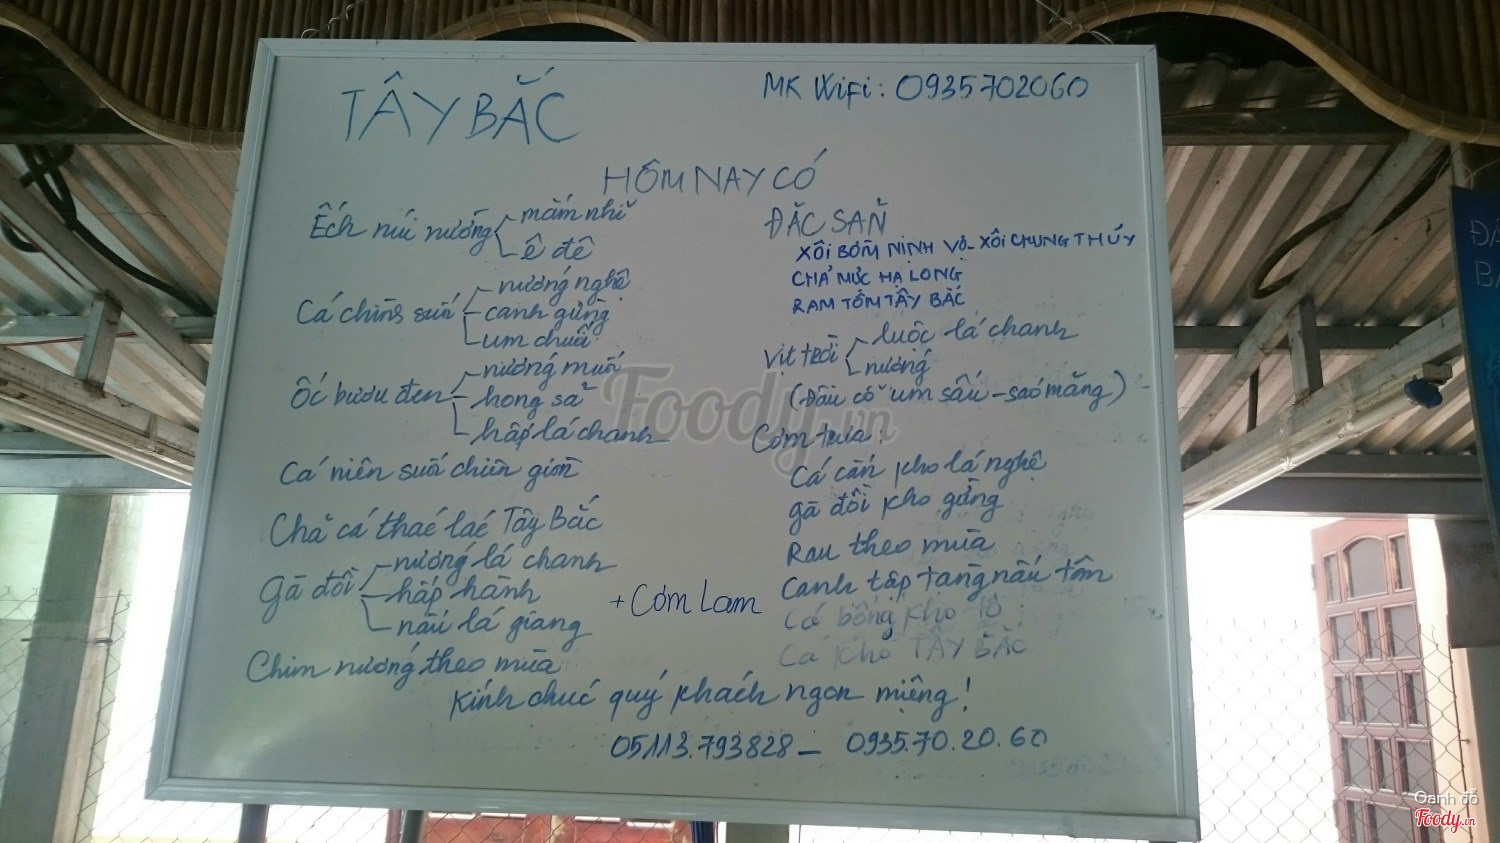 TÂY BẮC
MK WiFi: 0935702060
HÔM NAY CÓ
Ếch núi nướng
mắm nhĩ
ê đê
Cá chình suối
nướng nghệ
canh gừng
um chuối
Ốc bươu đen
nướng muối
hong sả
hấp lá chanh
Cá niên suối chiên giòn
Chả cá thác lác Tây Bắc
Gà đồi
nướng lá chanh
hấp hành
nấu lá giang
Chim nướng theo mùa
+ Cơm Lam
ĐẶC SẢN
XÔI BỜM NỊNH VỢ - XÔI CHUNG THỦY
CHẢ MỰC HẠ LONG
RAM TÔM TÂY BẮC
Vịt trời
luộc lá chanh
nướng
(Đầu cổ um sấu - sáo măng)
Cơm trưa:
Cá cấn kho lá nghệ
gà đồi kho gừng
Rau theo mùa
Canh tập tàng nấu tôm
Cá bống kho tộ
Cá kho TÂY BẮC
Kính chúc quý khách ngon miệng!
05113.793828 - 0935.70.20.60
Foody.vn
Oanh đỗ
Foody.vn